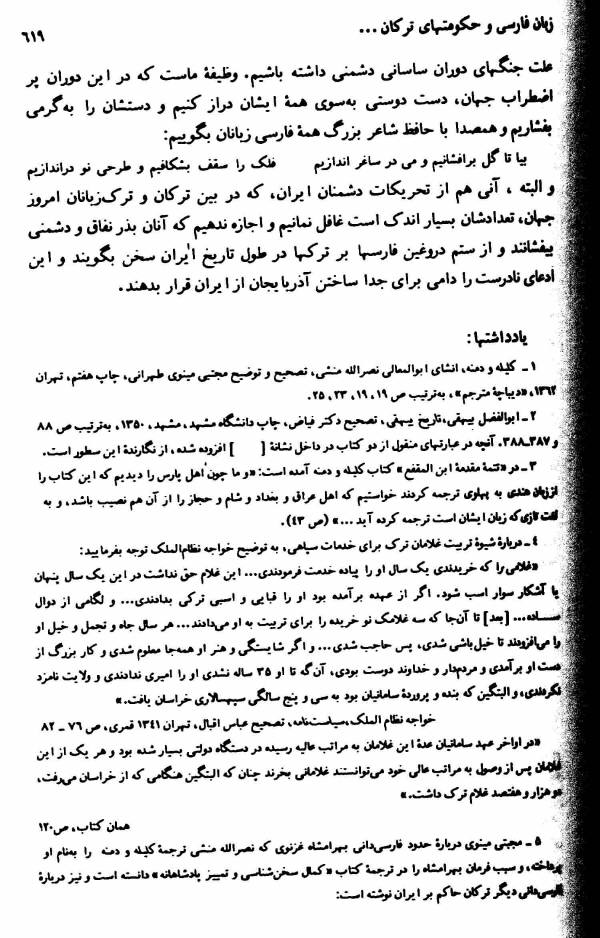 زبان فارسی و حکومتهای ترکان ...
۶۱۹
علت جنگهای دوران ساسانی دشمنی داشته باشیم. وظیفهٔ ماست که در این دوران پر
اضطراب جهان، دست دوستی به‌سوی همهٔ ایشان دراز کنیم و دستشان را به‌گرمی
بفشاریم و همصدا با حافظ شاعر بزرگ همهٔ فارسی زبانان بگوییم:
بیا تا گل برافشانیم و می در ساغر اندازیم فلک را سقف بشکافیم و طرحی نو دراندازیم
و البته ، آنی هم از تحریکات دشمنان ایران، که در بین ترکان و ترک‌زبانان امروز
جهان، تعدادشان بسیار اندک است غافل نمانیم و اجازه ندهیم که آنان بذر نفاق و دشمنی
بیفشانند و از ستم دروغین فارسها بر ترکها در طول تاریخ ایران سخن بگویند و این
ادعای نادرست را دامی برای جدا ساختن آذربایجان از ایران قرار بدهند.
یادداشتها:
۱ـ کلیله و دمنه، انشای ابوالمعالی نصرالله منشی، تصحیح و توضیح مجتبی مینوی طهرانی، چاپ هفتم، تهران
۱۳۶۲، «دیباچهٔ مترجم»، به‌ترتیب ص ۱۹، ۱۹، ۲۳، ۲۵.
۲ـ ابوالفضل بیهقی، تاریخ بیهقی، تصحیح دکتر فیاض، چاپ دانشگاه مشهد، مشهد، ۱۳۵۰، به‌ترتیب ص ۸۸
و ۳۸۷ـ۳۸۸. آنچه در عبارتهای منقول از دو کتاب در داخل نشانهٔ [ ] افزوده شده، از نگارندهٔ این سطور است.
۳ـ در «تتمهٔ مقدمهٔ ابن المقفع» کتاب کلیله و دمنه آمده است: «و ما چون اهل پارس را دیدیم که این کتاب را
از زبان هندی به پهلوی ترجمه کردند خواستیم که اهل عراق و بغداد و شام و حجاز را از آن هم نصیب باشد، و به
لغت تازی که زبان ایشان است ترجمه کرده آید ...» (ص ۴۳).
۴ـ دربارهٔ شیوهٔ تربیت غلامان ترک برای خدمات سپاهی، به توضیح خواجه نظام‌الملک توجه بفرمایید:
«غلامی را که خریدندی یک سال او را پیاده خدمت فرمودندی... این غلام حق نداشت در این یک سال پنهان
یا آشکار سوار اسب شود. اگر از عهده برآمده بود او را قبایی و اسبی ترکی بدادندی... و لگامی از دوال
ساده... [بعد] تا آن‌جا که سه غلامک نو خریده را برای تربیت به او می‌دادند... هر سال جاه و تجمل و خیل او
را می‌افزودند تا خیل‌باشی شدی، پس حاجب شدی... و اگر شایستگی و هنر او همه‌جا معلوم شدی و کار بزرگ از
دست او برآمدی و مردم‌دار و خداوند دوست بودی، آن‌گه تا او ۳۵ ساله نشدی او را امیری ندادندی و ولایت نامزد
نکردندی، و البتگین که بنده و پروردهٔ سامانیان بود به سی و پنج سالگی سپهسالاری خراسان یافت.»
خواجه نظام الملک، سیاست‌نامه، تصحیح عباس اقبال، تهران ۱۳۴۱ قمری، ص ۷۶ ـ ۸۲
«در اواخر عهد سامانیان عدهٔ این غلامان به مراتب عالیه رسیده در دستگاه دولتی بسیار شده بود و هر یک از این
غلامان پس از وصول به مراتب عالی خود می‌توانستند غلامانی بخرند چنان که البتگین هنگامی که از خراسان می‌رفت،
دو هزار و هفتصد غلام ترک داشت.»
همان کتاب، ص۱۲۰
۵ ـ مجتبی مینوی دربارهٔ حدود فارسی‌دانی بهرامشاه غزنوی که نصرالله منشی ترجمهٔ کلیله و دمنه را به‌نام او
پرداخته، و سبب فرمان بهرامشاه را در ترجمهٔ کتاب «کمال سخن‌شناسی و تمییز پادشاهانه» دانسته است و نیز دربارهٔ
فارسی‌دانی دیگر ترکان حاکم بر ایران نوشته است: